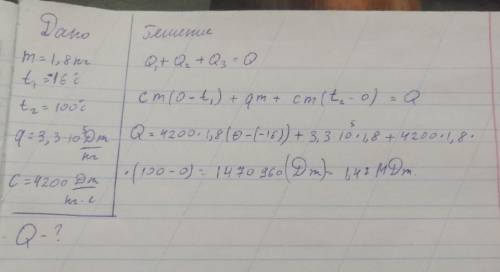 Дано
m = 1,8 кг
t₁ = -16°c
t₂ = 100°c
q = 3,3·10⁵ Дж/кг
C = 4200 Дж/кг·c
Q - ?
Решение
Q₁ + Q₂ + Q₃ = Q
cm(0 - t₁) + qm + cm(t₂ - 0) = Q
Q = 4200·1,8(0 - (-16)) + 3,3·10⁵·1,8 + 4200·1,8·
·(100 - 0) = 1470960(Дж) = 1,47 МДж.